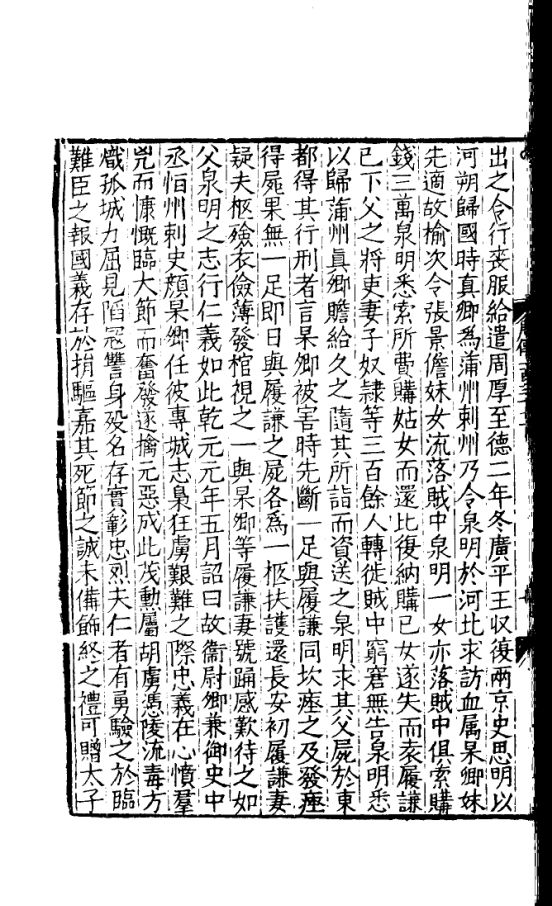 出之令行喪服給遣周厚至德二年冬廣平王収復兩京史思明以
河朔歸國時真卿爲蒲州刺州乃令泉明於河北求訪血属杲卿妹
先適故榆次令張景儋妹女流落賊中泉明一女亦落賊中俱索購
錢三萬泉明悉索所費購姑女而還比復納購已女遂失而袁履謙
已下父之將吏妻子奴隸等三百餘人轉徙賊中窮窘無告泉明悉
以歸蒲州眞卿贍給久之隨其所詣而資送之泉明求其父屍於東
都得其行刑者言杲卿被害時先斷一足與履謙同坎瘞之及發瘞
得屍果無一足即日與履謙之屍各爲一柩扶護還長安初履謙妻
疑夫柩殮衣儉薄發棺視之一與杲卿等履謙妻號踊感歎待之如
父泉明之志行仁義如此乾元元年五月詔曰故衞尉卿兼御史中
丞恒州刺史顏杲卿任彼專城志梟狂虜艱難之際忠義在心憤羣
兇而慷慨臨大節而奮發遂擒元惡成此茂勳屬胡虜憑陵流毒方
熾孤城力屈見陷冦讐身殁名存實彰忠烈夫仁者有勇驗之於臨
難臣之報國義存於捐驅嘉其死節之誠未備飾終之禮可贈太子